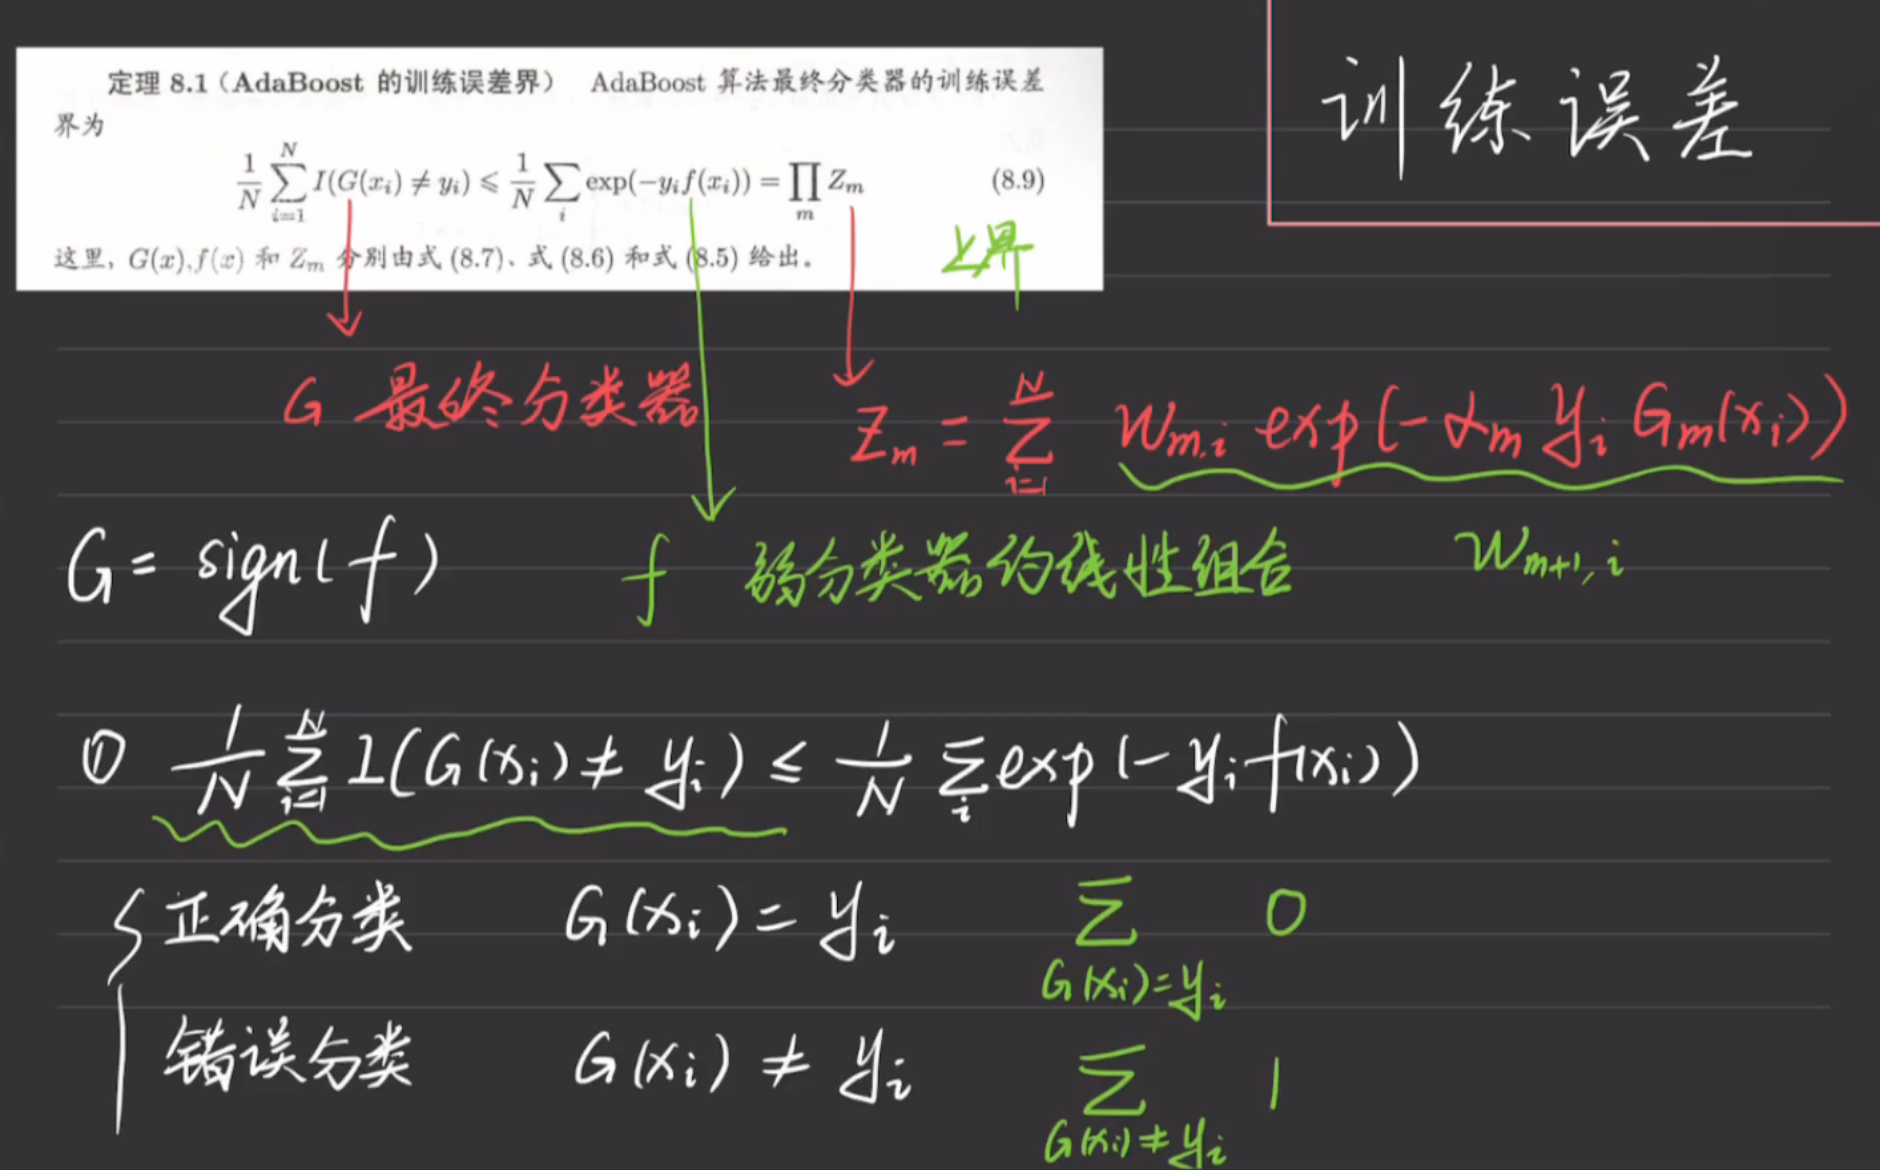 定理 8.1（AdaBoost 的训练误差界） AdaBoost 算法最终分类器的训练误差
界为
$\frac{1}{N}\sum_{i=1}^{N} I(G(x_i) \neq y_i) \leqslant \frac{1}{N}\sum_{i} \exp(-y_i f(x_i)) = \prod_{m} Z_m$ (8.9)
这里，G(x),f(x) 和 $Z_m$ 分别由式 (8.7)、式 (8.6) 和式 (8.5) 给出。
训练误差
上界
G 最终分类器
$Z_m = \sum_{i=1}^{N} w_{m,i} \exp(-\alpha_m y_i G_m(x_i))$
G = sign(f)
f 弱分类器的线性组合
$w_{m+1,i}$
① $\frac{1}{N}\sum_{i=1}^{N} I(G(x_i) \neq y_i) \leq \frac{1}{N}\sum_{i} \exp(-y_i f(x_i))$
正确分类 $G(x_i) = y_i$ $\sum_{G(x_i)=y_i} 0$
错误分类 $G(x_i) \neq y_i$ $\sum_{G(x_i) \neq y_i} 1$